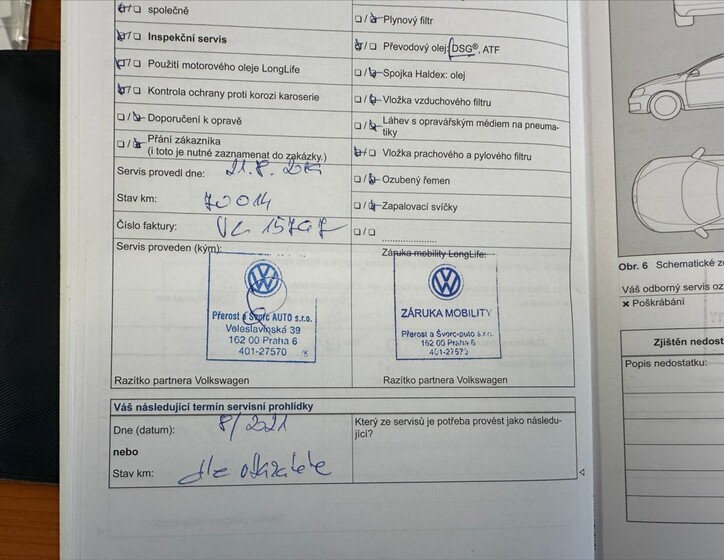 společně
Inspekční servis
Použití motorového oleje LongLife
Kontrola ochrany proti korozi karoserie
Doporučení k opravě
Přání zákazníka
(i toto je nutné zaznamenat do zakázky.)
Servis provedl dne:
Stav km: 70014
Číslo faktury:
Servis proveden (kým):
Přerost a Švorc AUTO s.r.o.
Veleslavínská 39
162 00 Praha 6
401-27570
Razítko partnera Volkswagen
Plynový filtr
Převodový olej: DSG®, ATF
Spojka Haldex: olej
Vložka vzduchového filtru
Láhev s opravářským médiem na pneuma-
tiky
Vložka prachového a pylového filtru
Ozubený řemen
Zapalovací svíčky
Záruka mobility LongLife:
ZÁRUKA MOBILITY
Přerost a Švorc-auto s.r.o.
162 00 Praha 6
Razítko partnera Volkswagen
Váš následující termín servisní prohlídky
Dne (datum): 8/2021
nebo
Stav km: dle ukazatele
Který ze servisů je potřeba provést jako následu-
jící?
Obr. 6 Schematické
Váš odborný servis
Poškrábání
Zjištěn
Popis nedostatku: